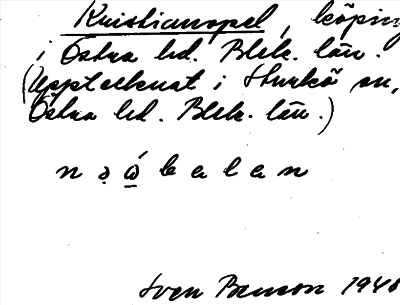 Kristianopel, köping
i Östra hd. Blek. län.
(Upptecknat i Sturkö sn,
Östra hd. Blek. län.)
Sven Benson 1948